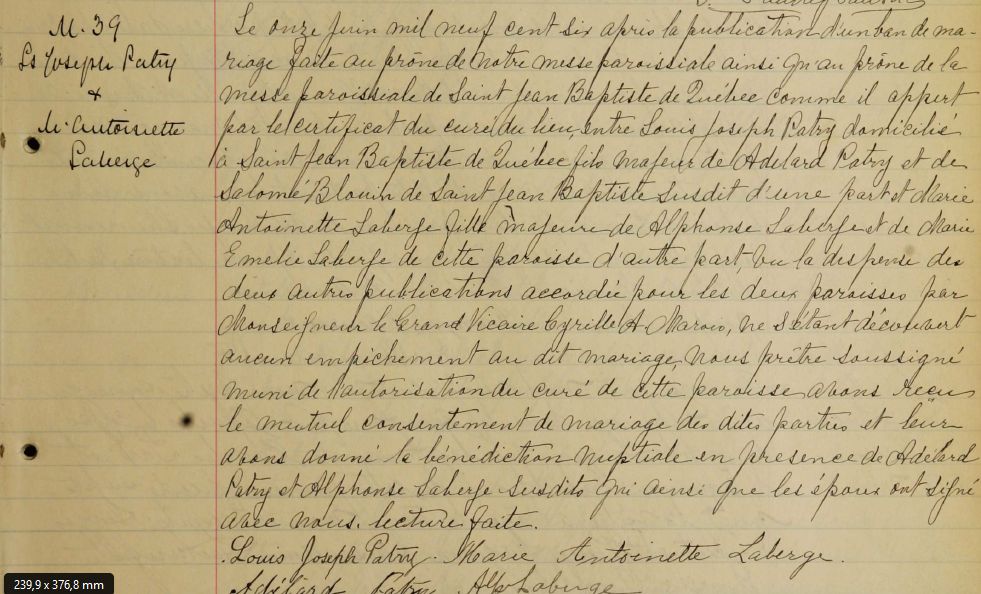 M. 39
Ls Joseph Patry
&
M. Antoinette
Laberge
Le onze juin mil neuf cent six après la publication d'un ban de ma-
riage faite au prône de notre messe paroissiale ainsi qu'au prône de la
messe paroissiale de Saint Jean Baptiste de Québec comme il appert
par le certificat du curé du lieu, entre Louis Joseph Patry domicilié
à Saint Jean Baptiste de Québec fils majeur de Adélard Patry et de
Salomé Blouin de Saint Jean Baptiste susdit d'une part et Marie
Antoinette Laberge fille majeure de Alphonse Laberge et de Marie
Emelie Laberge de cette paroisse d'autre part, Vu la dispense des
deux autres publications accordée pour les deux paroisses par
Monseigneur le Grand Vicaire Cyrille A Marois, ne s'étant découvert
aucun empêchement au dit mariage, Nous prêtre soussigné
muni de l'autorisation du curé de cette paroisse avons reçu
le mutuel consentement de mariage des dites parties et leur
avons donné la bénédiction nuptiale en présence de Adélard
Patry et Alphonse Laberge susdits qui ainsi que les époux ont signé
avec nous. lecture faite.
Louis Joseph Patry. Marie Antoinette Laberge.
Adélard Patry Alp Laberge
239,9 x 376,8 mm